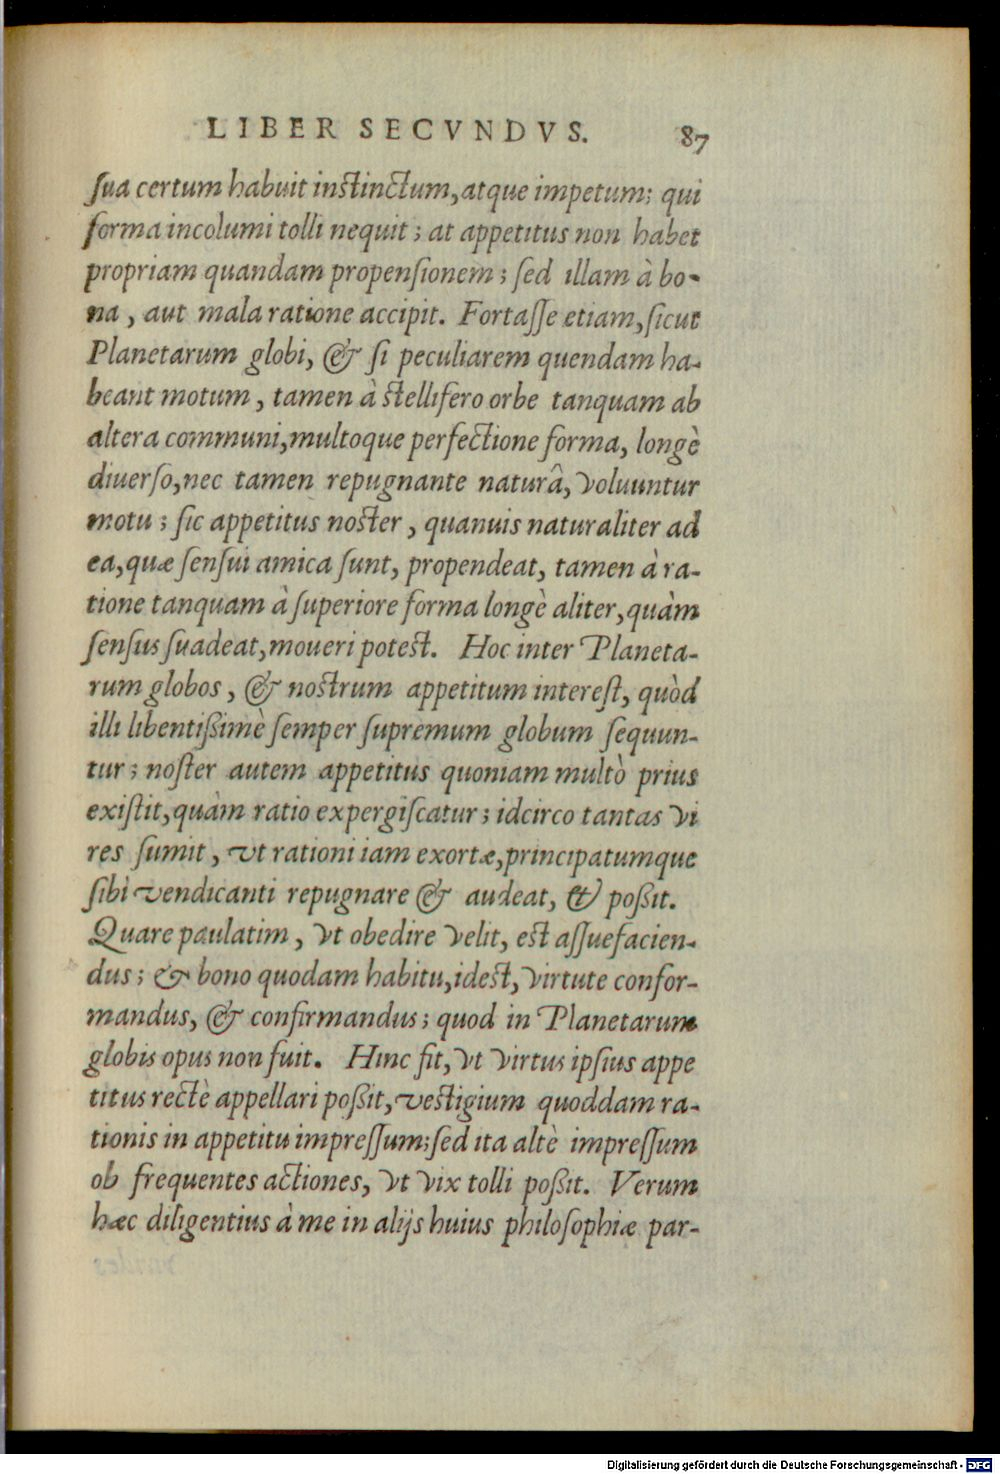 LIBER SECVNDVS. 87
sua certum habuit instinctum, atque impetum; qui
forma incolumi tolli nequit; at appetitus non habet
propriam quandam propensionem; sed illam à bo-
na, aut mala ratione accipit. Fortasse etiam, sicut
Planetarum globi, & si peculiarem quendam ha-
beant motum, tamen à stellifero orbe tanquam ab
altera communi, multoque perfectione forma, longè
diuerso, nec tamen repugnante naturâ, voluuntur
motu; sic appetitus noster, quanuis naturaliter ad
ea, quæ sensui amica sunt, propendeat, tamen à ra-
tione tanquam à superiore forma longè aliter, quàm
sensus suadeat, moueri potest. Hoc inter Planeta-
rum globos, & nostrum appetitum interest, quòd
illi libentißimè semper supremum globum sequun-
tur; noster autem appetitus quoniam multò prius
existit, quàm ratio expergiscatur; idcirco tantas vi
res sumit, vt rationi iam exortæ, principatumque
sibi vendicanti repugnare & audeat, & poßit.
Quare paulatim, vt obedire velit, est assuefacien-
dus; & bono quodam habitu, idest, virtute confor-
mandus, & confirmandus; quod in Planetarum
globis opus non fuit. Hinc fit, vt virtus ipsius appe
titus rectè appellari poßit, vestigium quoddam ra-
tionis in appetitu impressum; sed ita altè impressum
ob frequentes actiones, vt vix tolli poßit. Verum
hæc diligentius à me in alijs huius philosophiæ par-
Digitalisierung gefördert durch die Deutsche Forschungsgemeinschaft - DFG